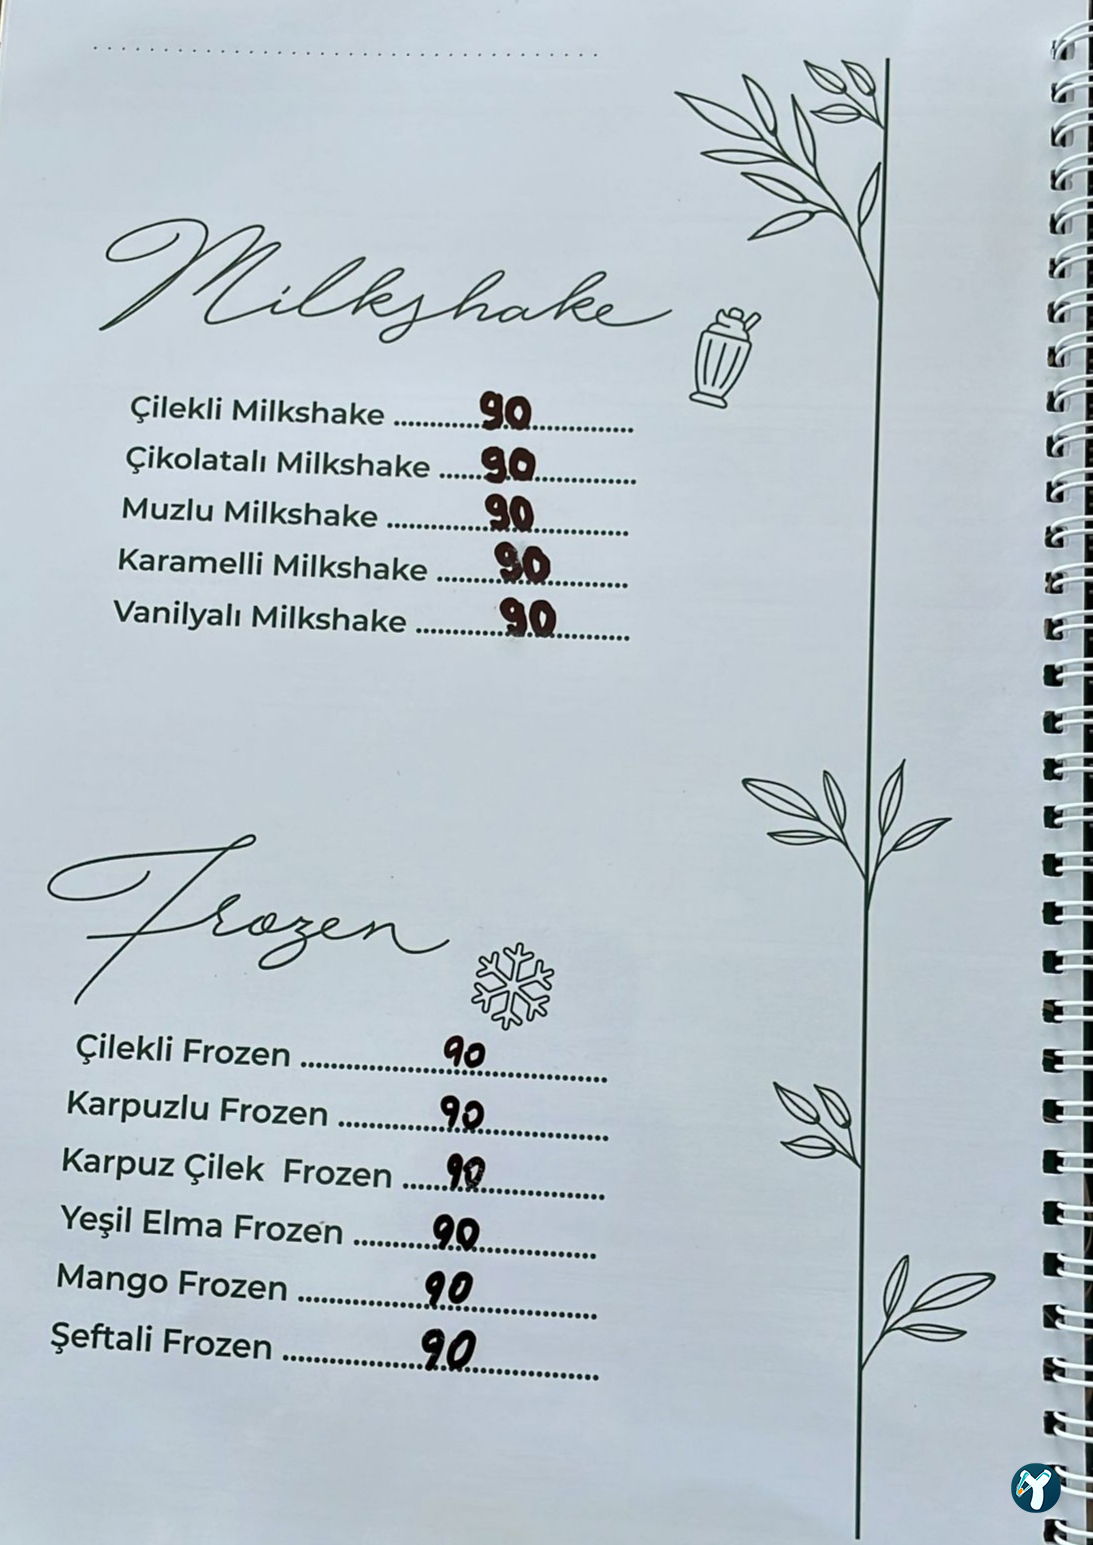 Milkshake
Çilekli Milkshake ........................ 90
Çikolatalı Milkshake ........................ 90
Muzlu Milkshake ........................ 90
Karamelli Milkshake ........................ 90
Vanilyalı Milkshake ........................ 90
Frozen
Çilekli Frozen ........................ 90
Karpuzlu Frozen ........................ 90
Karpuz Çilek Frozen ........................ 90
Yeşil Elma Frozen ........................ 90
Mango Frozen ........................ 90
Şeftali Frozen ........................ 90